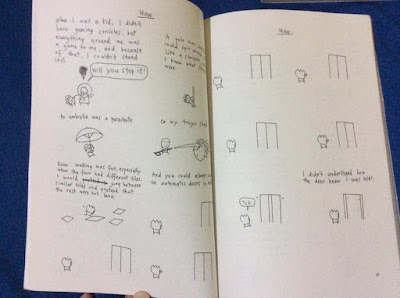 When I was a kid, I didn't
have gaming consoles, but
everything around me was
a game to me, and because
of that, I couldn't stand
still.
Will you stop it!
A pole was
could spin around
Like a
I know what
were
An umbrella was a parachute
Or my tongue
Even walking was fun, especially
when the floor had different tiles.
I would jump between
similar tiles and pretend that
the rest were hot lava.
And you could always
an automatic doors
Tik
I didn't understand how
the door knew I was near.